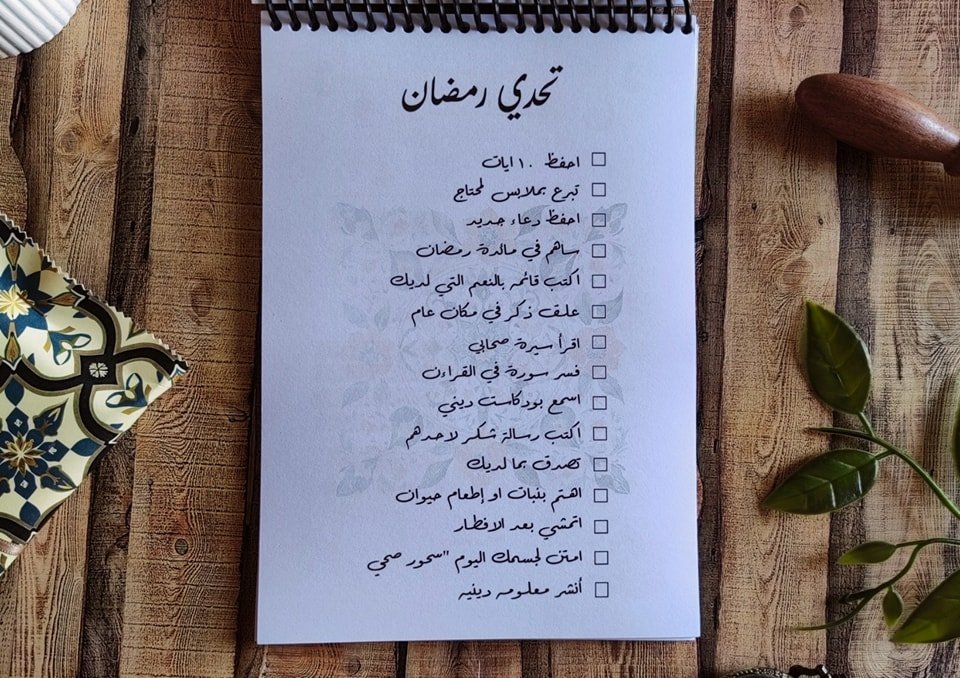 تحدي رمضان
احفظ ١٠ ايات
تبرع بملابس لمحتاج
احفظ دعاء جديد
ساهم في مائدة رمضان
اكتب قائمه بالنعم التي لديك
علق ذكر في مكان عام
اقرأ سيرة صحابي
فسر سورة في القراءن
اسمع بودكاست ديني
اكتب رسالة شكر لاحدهم
تصدق بما لديك
اهتم بنبات او إطعام حيوان
اتمشي بعد الافطار
امتن لجسمك اليوم "سحور صحي
أنشر معلومه دينيه